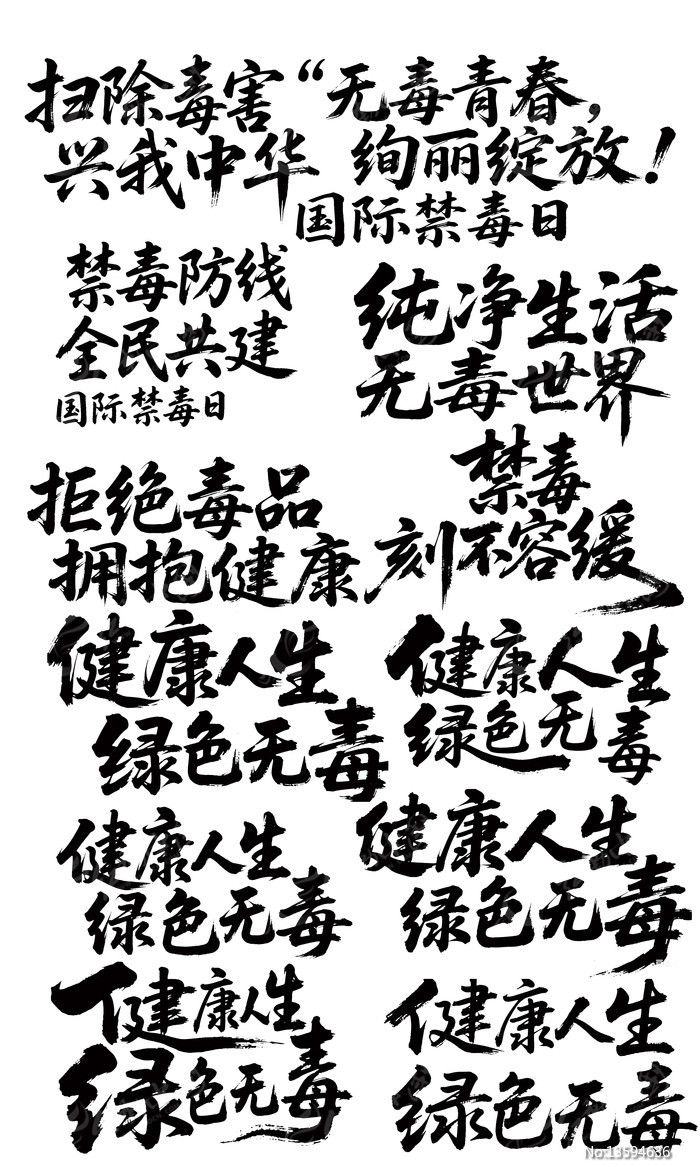 扫除毒害
兴我中华
“无毒青春，
绚丽绽放！
国际禁毒日
禁毒防线
全民共建
国际禁毒日
纯净生活
无毒世界
禁毒
刻不容缓
拒绝毒品
拥抱健康
健康人生
绿色无毒
健康人生
绿色无毒
健康人生
绿色无毒
健康人生
绿色无毒
健康人生
绿色无毒
健康人生
绿色无毒
No:13594636